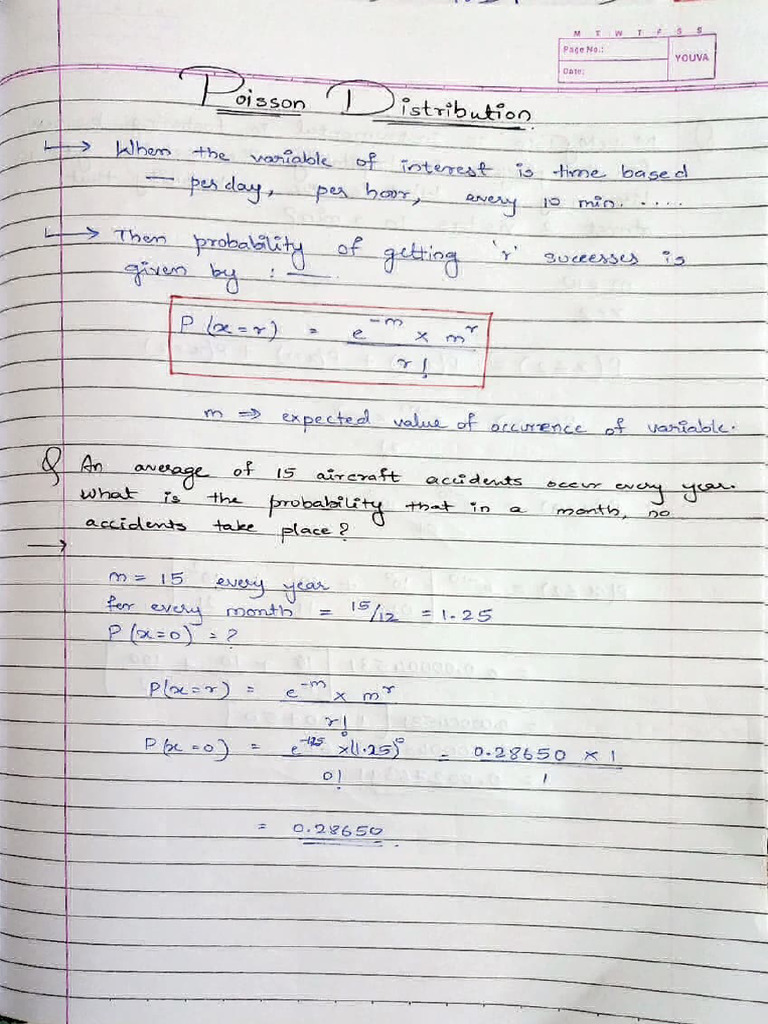 M T W T F S S
Page No.:
Date:
YOUVA
Poisson Distribution
↳ When the variable of interest is time based
— per day, per hoor, every 10 min.....
↳ Then probability of getting 'r' successes is
given by : —
P (x=r) = e^-m × m^r / r!
m ⇒ expected value of occurence of variable.
Q An average of 15 aircraft accidents occur every year.
What is the probability that in a month, no
accidents take place?
→
m = 15 every year
for every month = 15/12 = 1.25
P (x=0) = ?
P(x=r) = e^-m × m^r / r!
P(x=0) = e^-1.25 × (1.25)^0 / 0! = 0.28650 × 1 / 1
= 0.28650